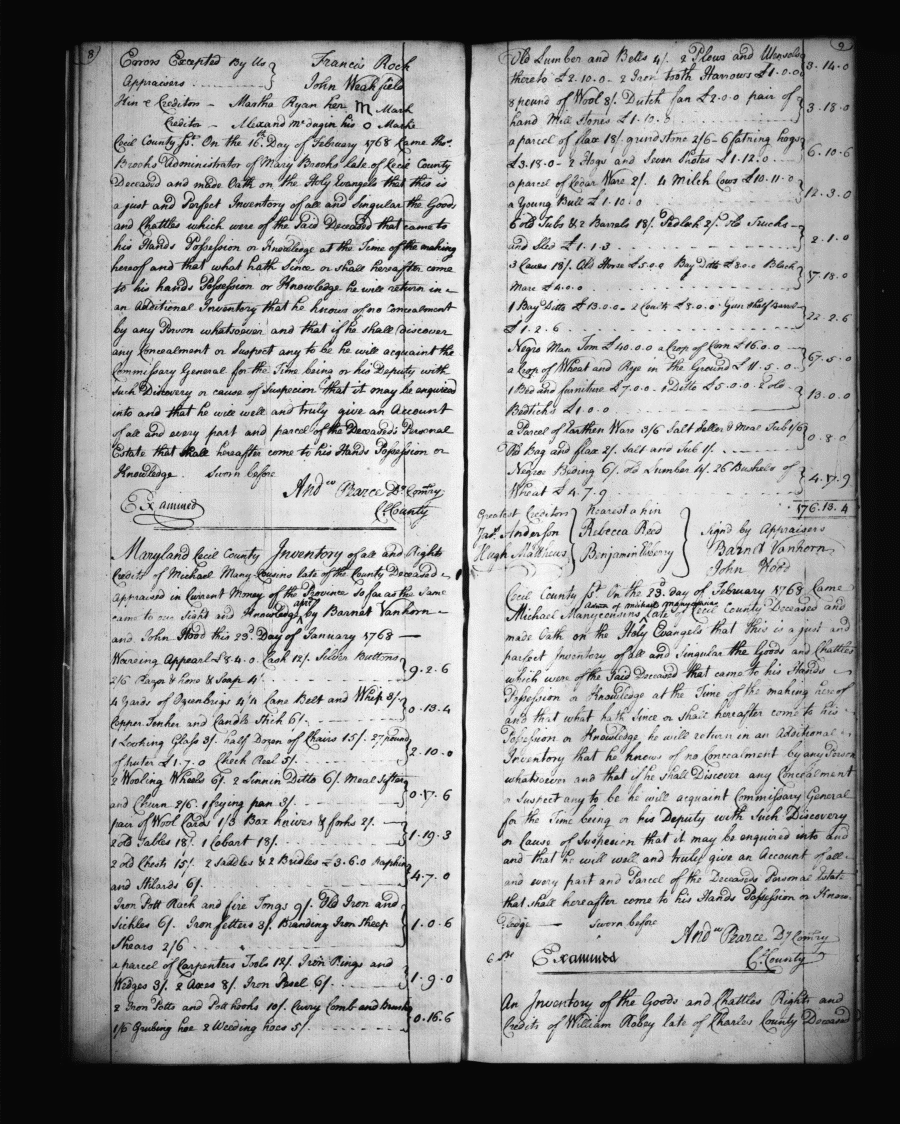 8
Errors Excepted By Us } Francis Rock
Appraisers } John Weakfield
Kin & Creditors - Martha Ryan her M Mark
Creditor - Alexand Mc dugin his O Marke
Cecil County Sc. On the 16th Day of February 1768 Came Thos.
Brooks Administrator of Mary Brooks late of Cecil County
Deceased and made Oath on the Holy Evangels that this is
a just and Perfect Inventory of all and Singular the Goods
and Chattles which were of the Said Deceased that came to
his Hands Possession or Knowledge at the Time of the making
hereof and that what hath Since or Shall hereafter come
to his hands Possession or Knowledge he will return in
an Additional Inventory that he knows of no concealment
by any Person whatsoever and that if he shall discover
any Concealment or Suspect any to be he will acquaint the
Commissary General for the Time being or his Deputy with
Such Discovery or cause of Suspecion that it may be enquired
into and that he will well and truly give an Account
of all and every part and parcel of the Deceased's Personal
Estate that shall hereafter come to his Hands Possession or
Knowledge Sworn before
Andw Pearce Dy Comry
Examined Cl County
Maryland Cecil County Inventory of all and Rights
Credits of Michael Many-Cousins late of the County Deceased
Appraised in Current Money of the Province So far as the Same
came to our Sight and Knowledge by Barnet Vanhorn
and John Hood this 23d Day of January 1768
Wareing Appearl £8.4.0 Cash 12/. Silver Buttons
2/6 Razor & hone & Soap 4/ } 9.2.6
4 Yards of Oznenbrigs 4/4 Cane Belt and Whip 3/.
Copper Tenker and Candle Stick 6/. } 0.13.4
1 Looking Glass 3/. half Dozen of Chairs 15/. 27 pound
of puter £1.7.0 Check Reel 5/. } 2.10.0
2 Wooling Wheels 6/. 2 Linnin Ditto 6/. Meal Sifter
and Churn 2/6. 1 frying pan 3/. } 0.17.6
pair of Wool Cards 1/3 Box knives & forks 2/.
2 old Tables 18/. 1 Cobart 18/. } 1.19.3
2 old Chests 15/. 2 Saddles & 2 Bridles £3.6.0
and Stilards 6/. } 4.7.0
Iron Pott Rack and fire Tongs 9/. Old Iron and
Sickles 6/. Iron fetters 3/. Branding Iron Sheep
Shears 2/6 } 1.0.6
a parcel of Carpenters Tools 12/. Iron Rings and
Wedges 3/. 2 Axes 8/. Iron 6/. } 1.9.0
2 Iron Potts and Pot hooks 10/. Curry Comb and Brush
Grubing hoe 2 Weeding hoes 5/. } 0.16.6
9
Old Lumber and Bells 4/. 2 Plows and Utensols
thereto £2.10.0 - 2 Iron tooth Harrows £1.0.0 } 3.14.0
8 pound of Wool 8/. Dutch fan £2.0.0 pair of
hand Mill Stones £1.10.0 } 3.18.0
a parcel of flax 18/. grind stone 2/6 - 6 fatning hogs
£3.18.0 - 2 Hogs and Seven Shotes £1.12.0 } 6.10.6
a parcel of Cedar Ware 2/. 4 Milch Cows £10.11.0
a Young Bull £1.10.0 } 12.3.0
6 old Tubs & 2 Barrels 18/. Padlock 2/. old Trucks
and Sled £1.1.3 } 2.1.0
3 Calves 18/. Old Horse £5.0.0 Bay Ditto £8.0.0 Black
Mare £4.0.0 } 17.18.0
1 Bay Ditto £13.0.0 - 2 Coults £8.0.0 - Gun & half barrel
£1.2.6 } 22.2.6
Negro Man Tom £40.0.0 a Crop of Corn £16.0.0
a Crop of Wheat and Rye in the Ground £11.5.0 } 67.5.0
1 Bed and furniture £7.0.0 1 Ditto £5.0.0
Bedticks £1.0.0 } 13.0.0
a Parcel of Earthen Ware 3/6 Salt Seller & Meal Tub 1/6
Bag and flax 2/. Salt and Tub 1/. } 0.8.0
Negroe Beding 6/. old Lumber 4/. 26 Bushels of
Wheat £4.7.9 } 4.17.9
176.13.4
Greatest Creditors } Nearest a kin }
Jas. Anderson } Rebecca Reed } Signd by Appraisers
Hugh Matthews } Benjamin Elberry } Barnet Vanhorn
John Hood
Cecil County Sc. On the 23d. day of February 1768 Came
Michael Manycousins Admr. of Michael Manycousins late of Cecil County Deceased and
made Oath on the Holy Evangels that this is a just and
perfect Inventory of all and Singular the Goods and Chattles
which were of the Said Deceased that came to his Hands
Possession or Knowledge at the Time of the making hereof
and that what hath Since or Shall hereafter come to his
Possession or Knowledge he will return in an Additional
Inventory that he knows of no Concealment by any Person
whatsoever and that if he Shall Discover any Concealment
or Suspect any to be he will acquaint Commissary General
for the Time being or his Deputy with Such Discovery
or Cause of Suspecion that it may be enquired into and
and that he will well and truly give an Account of all
and every part and Parcel of the Deceaseds Personal Estate
that shall hereafter come to his Hands Possession or Know
ledge Sworn before
Andw Pearce Dy Comry
Examined Cl. County
An Inventory of the Goods and Chattles Rights and
Credits of William Robey late of Charles County Deceased